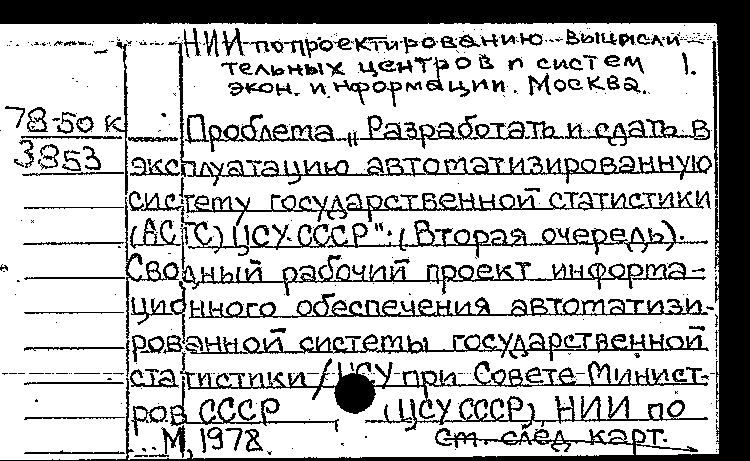 НИИ по проектированию вычисли-
тельных центров и систем 1.
экон. информации. Москва.
78-50 к Проблема „Разработать и сдать в
3853 эксплуатацию автоматизированную
систему государственной статистики
(АСГС) ЦСУ СССР": (Вторая очередь).
Сводный рабочий проект информа-
ционного обеспечения автоматизи-
рованной системы государственной
статистики / ЦСУ при Совете Минист-
ров СССР (ЦСУ СССР), НИИ по
М, 1978. см. след. карт.